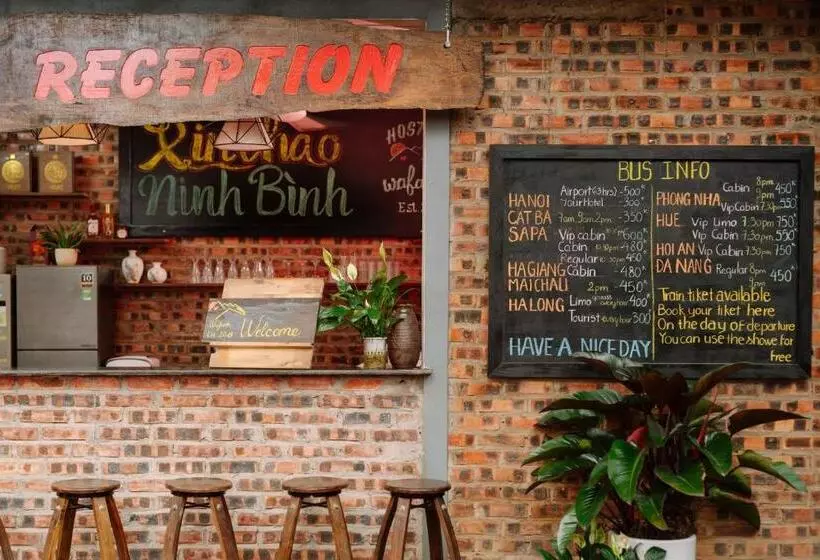 RECEPTION
Xin Chao
Ninh Bình
HOST
wafa
Est.
Welcome
BUS INFO
HANOI Airport (3hrs) - 500K
Your Hotel - 300K
CAT BA 7am 9am 2pm - 350K
SAPA Vip cabin - 600K
Cabin 10:30pm - 480
Regular 10:30pm 450
HAGIANG Cabin - 480K
MAI CHAU 2pm - 450K
HA LONG Limo every hour 400K
Tourist every hour 300K
HAVE A NICE DAY
PHONG NHA Cabin 8pm 9pm 450K
Vip Cabin 7:30pm 550
HUE Vip Limo 7:30pm 750
Vip Cabin 7:30pm 550
HOI AN Vip Cabin 7:30pm 750
DA NANG Regular 8pm 9pm 450K
Train tiket available
Book your tiket here
On the day of departure
You can use the showe for
free